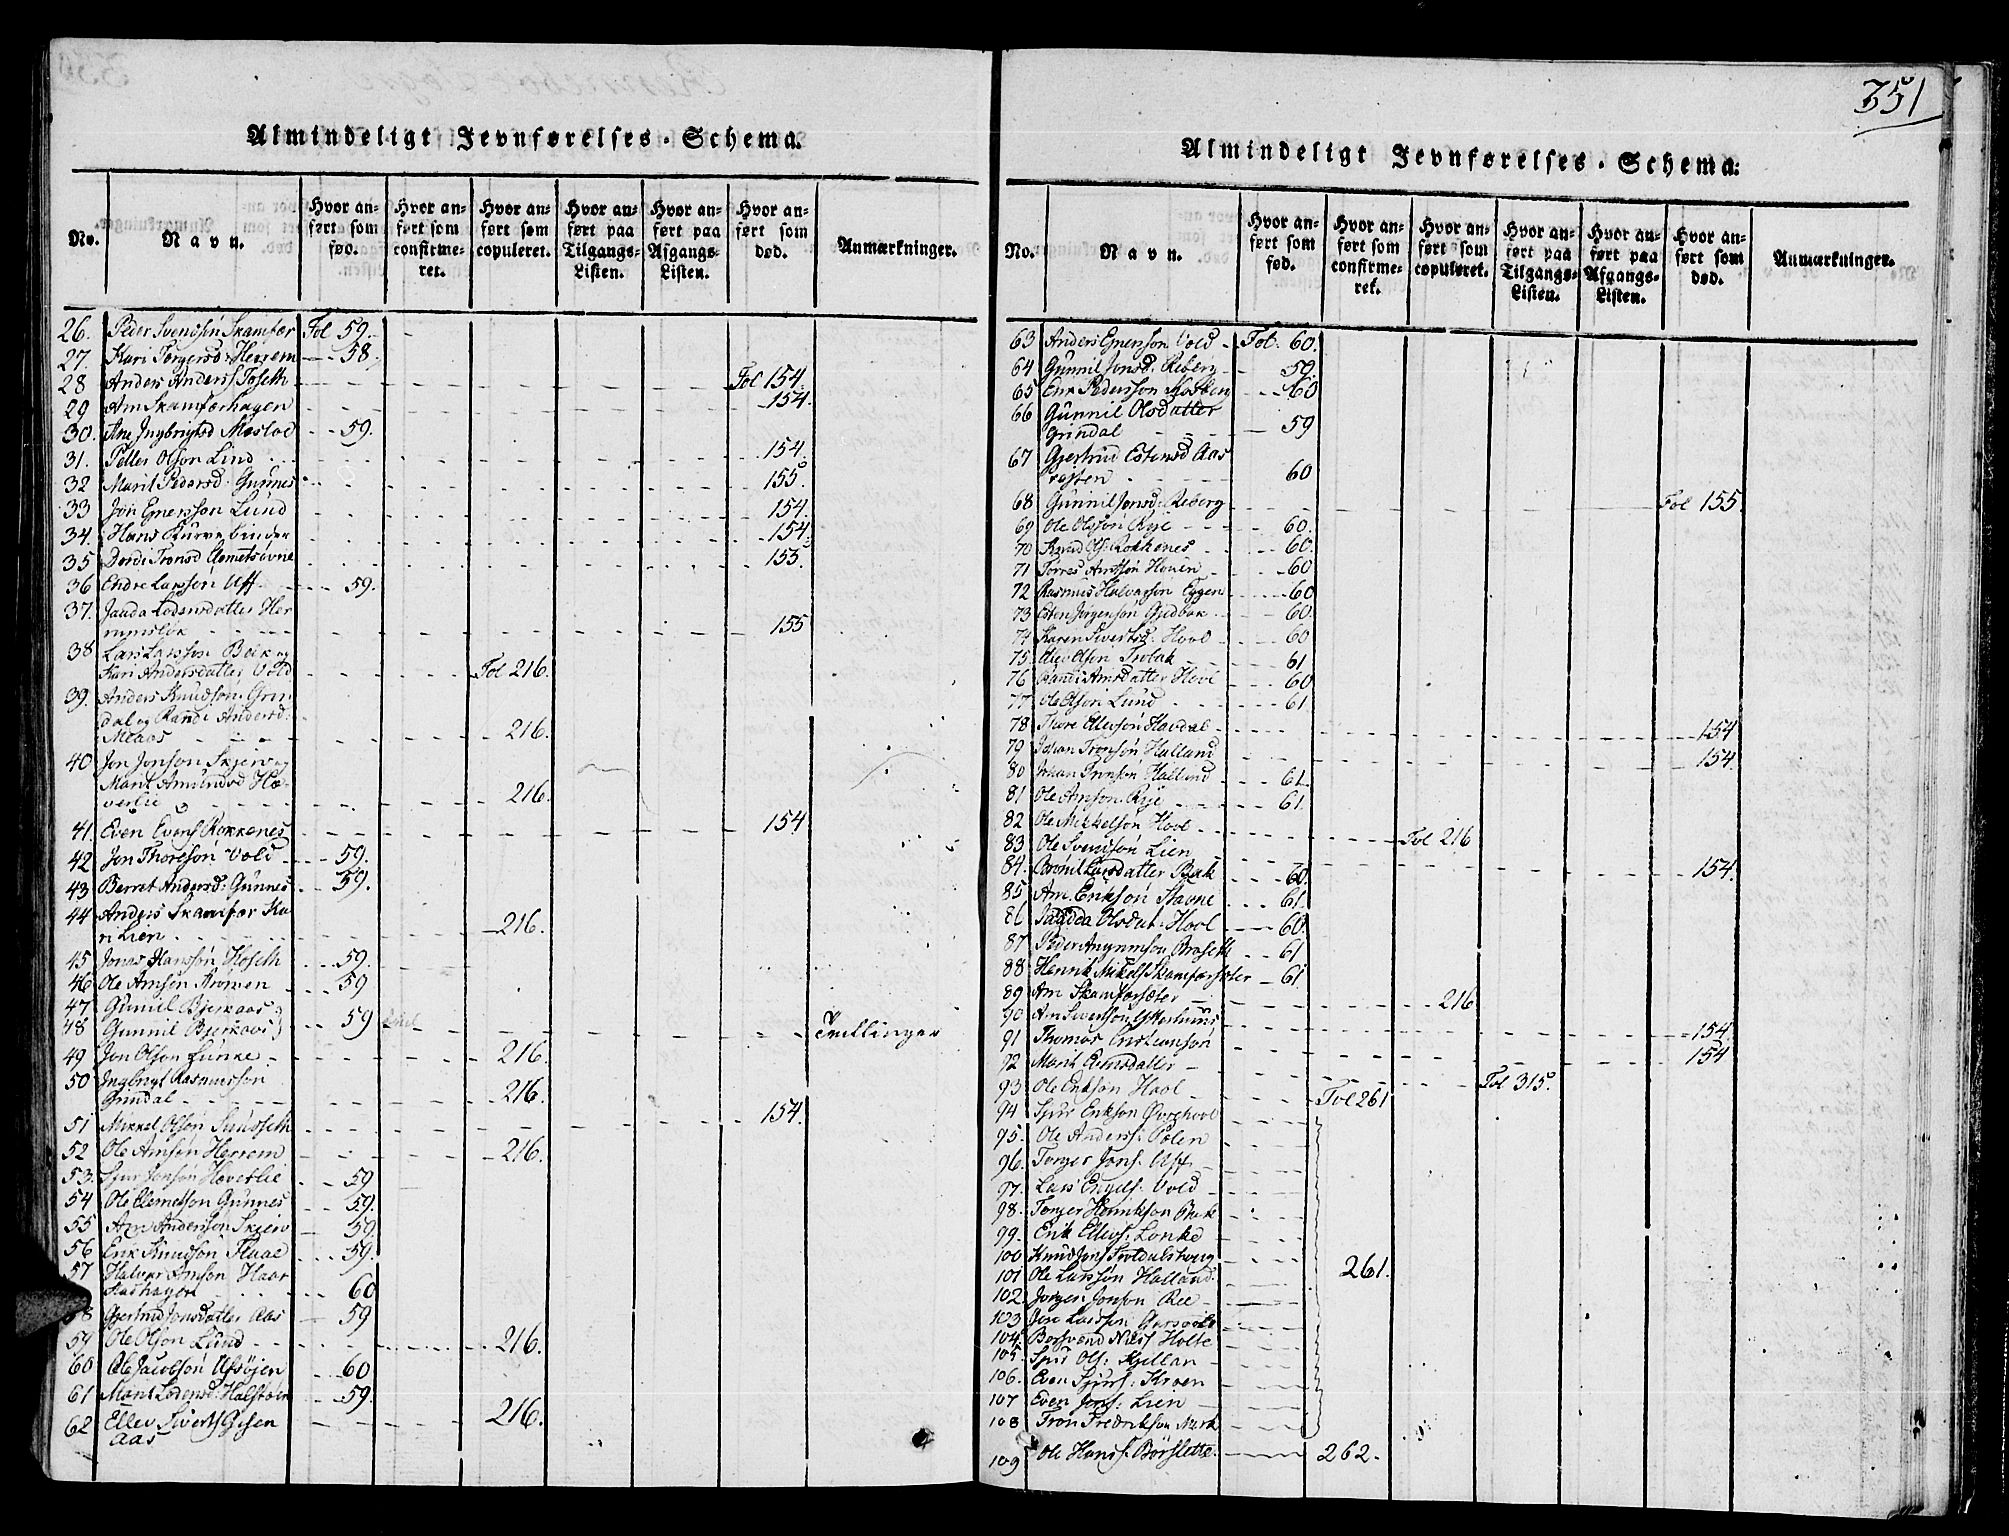 351
Almindeligt Jevnførelses-Schema.
No.
Navn.
Hvor anført som fød.
Hvor anført som confirmeret.
Hvor anført som copuleret.
Hvor anført paa Tilgangs-Listen.
Hvor anført paa Afgangs-Listen.
Hvor anført som død.
Anmærkninger.
26. Peder Svendsøn Skamfær Fol 59.
27. Kari Torgersd: Herrem 58.
28 Anders Anders Toseth Fol 154.
29 Arn Skamfærhagen 154.
30. Ane Ingbrigtsd 59.
31. Peller Olson Lind 154.
32 Marit Pedersd. Gunnes 155.
33 Jon Enersson Lund 154.
34. Hans Kurvebinder 154.
35 Dordi Tronsd 155.
36 Endre Larssøn Uff 59.
37. Lodensdatter Her
155
38 Lars Larssøn Bak og
Kari Andersdatter Vold Fol 216.
39. Anders Knudson Grin
dal og Randi Andersd:
216.
40 Jon Jonson Skjeiv og
Marit Amundsd Hæ-
verlie 216.
41. Even Evens Rokkenes 154
42 Jon Thoreson Vold 59.
43 Berret Andersd: Gunnes 59.
44 Anders Skamfær Ka
ri Lien 216.
45 Jonas Hansøn Hoseth 59.
46 Ole Arnsøn 59
47 Gunnil Bjerkaas
48 Gunnil Bjerkaas 59 Trillinger
49 Jon Olson Lunke 216.
50 Ingbrigt Rasmusson
Grindal 216.
51 Mikkel Olson Sundseth 154.
52 Ole Arnsøn Herrem 216.
53. Sjur Jonsøn Hæverlie 59
54 Ole Clemetsøn Gunnes 59.
55 Arn Anderson Skjeiv 59.
56 Erik Knudson Flaae 59.
57 Halvor Arnson Haar
60
58 Gjertrud Jonsdatter Aas 59
59 Ole Olson Lund 216.
60 Ole Jacobson 60
61 Marit Lodensd: 59.
62 Ellev Siverts
Aas 216.
Almindeligt Jevnførelses-Schema.
No.
Navn.
Hvor anført som fød.
Hvor anført som confirmeret.
Hvor anført som copuleret.
Hvor anført paa Tilgangs-Listen.
Hvor anført paa Afgangs-Listen.
Hvor anført som død.
Anmærkninger.
63 Anders Enerson Vold Fol: 60.
64 Gunnil Jonsd: Reberg 59.
65 Erik Pederson 60
66 Gunnil Olsdatter
Grindal 59
67 Gjertrud Estensd Aas
60
68 Gunnil Jonsd: Reberg Fol 155
69 Ole Olsson Rye 60.
70 Knud Ols: Rokkenes 60.
71 Torres Arntsøn Hoven 60
72 Rasmus Halvorsøn Eggen 60
73 Esten Jørgenson 60.
74 Karen Sivertsd: Hool 60
75 Olson 61
76 Randi Arnsdatter Hevle 60
77 Ole Olson Lund 61
78 Tjøre Ellevson Havdal 154
79 Johan Tronson Halland 154.
80 Johan Tronson Halland 61.
81 Ole Arnson Rye 61.
82 Ole Mikkelsøn Hool Fol 216
83 Ole Svendsøn Lien 154.
84. Larsdatter Bak 60.
85 Arn Erikson Stavne 61.
86 Olsdat: Hool 60.
87 Peder 61
88 Henrik Mikels Skamfærsæter 61
89 Arn Skamfærsæter 216
90 Arn Iverson 154
91 Thomas Cristianson 154
92 Marit Fol 315.
93 Ole Erikson Hool Fol 261
94 Sjur Erikson
95. Ole Anders:
96. Torger Jons. Uff
97. Lars Engels: Vold
98. Torger Henrikson Bak
99. Erik Ellevs: Lonke
100 Knud Jons 261.
101 Ole Larsson Halland
102. Jørgen Jonson Ree
103 Jon Larsson
104. Nils Holte
105. Sjur Ols:
106. Even Sjurs:
107 Even Jons: Lien
108 Tron Fredrikson
109 Ole Hans: Børslette 262.